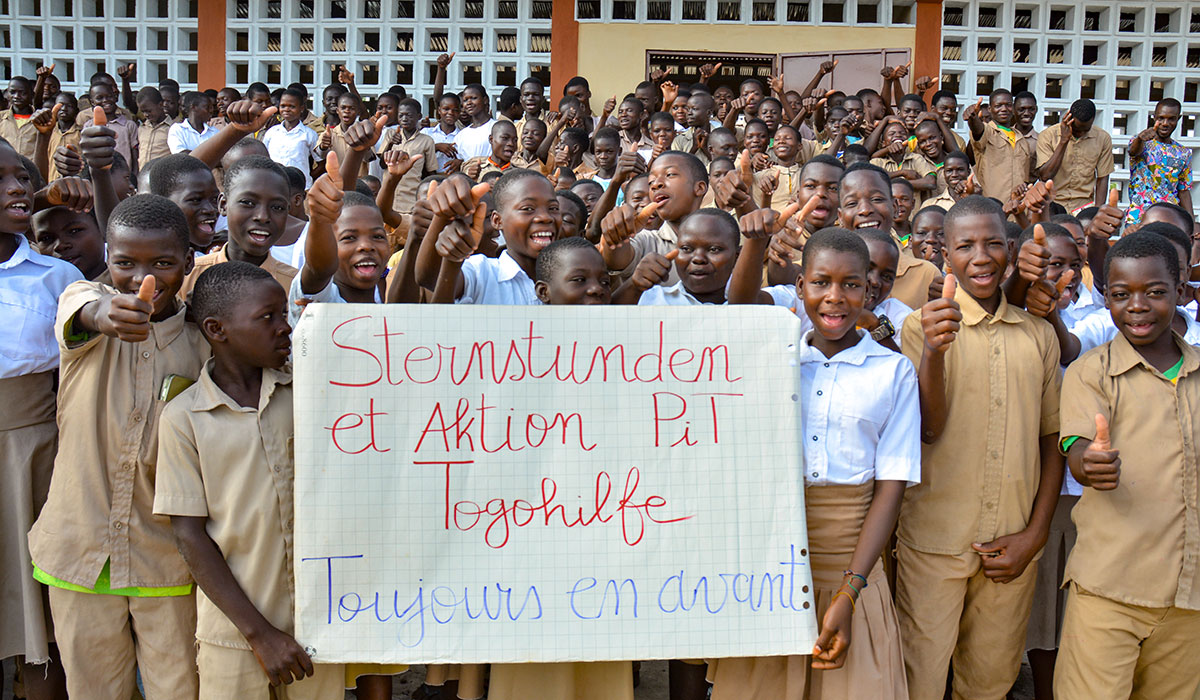 Sternstunden
et Aktion PiT
Togohilfe
Toujours en avant